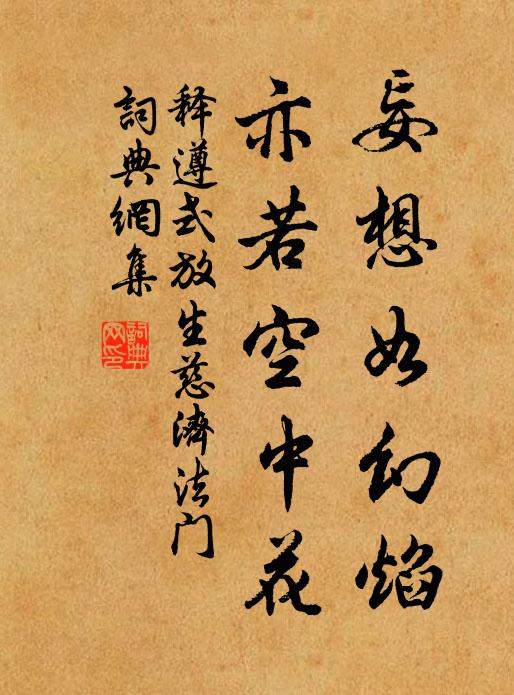 妄想如幻焰
亦若空中花
释遵式放生慈濟法门
詞典網集
詞典网印